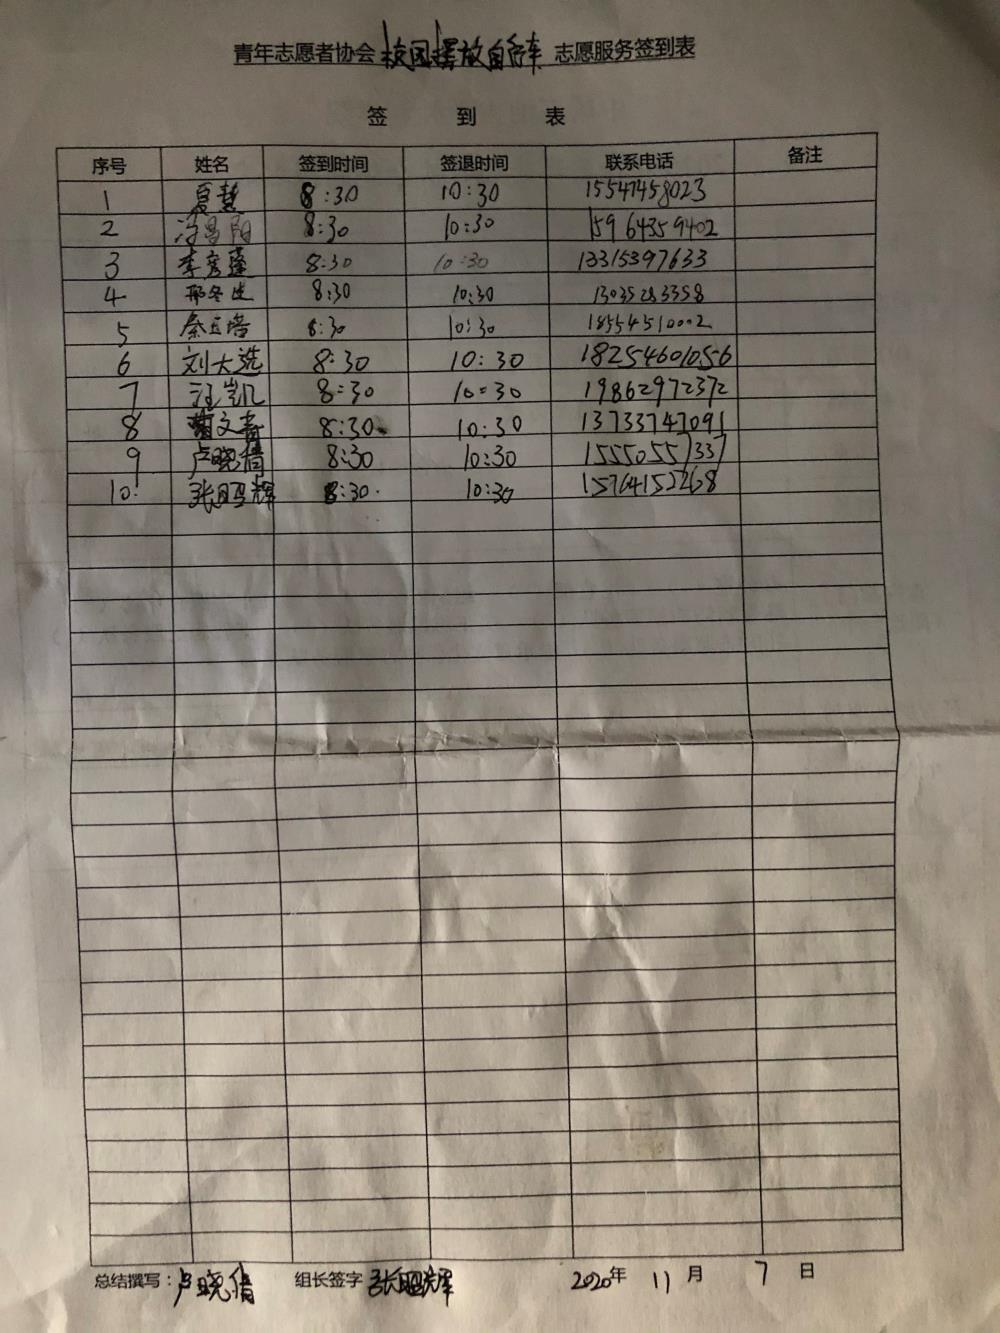 青年志愿者协会校园摆放自行车志愿服务签到表
签 到 表
序号 姓名 签到时间 签退时间 联系电话 备注
1 夏慧 8:30 10:30 15547458023
2 冯昌阳 8:30 10:30 15964359402
3 李彦蓬 8:30 10:30 13315397633
4 8:30 10:30 13035283358
5 8:30 10:30 18554510002
6 刘大选 8:30 10:30 18254601056
7 汪凯 8:30 10:30 19862972372
8 8:30 10:30 13733747091
9 卢晓倩 8:30 10:30 15550557337
10. 张昭辉 8:30 10:30 15764152268
总结撰写:卢晓倩 组长签字 张昭辉 2020年 11月 7日